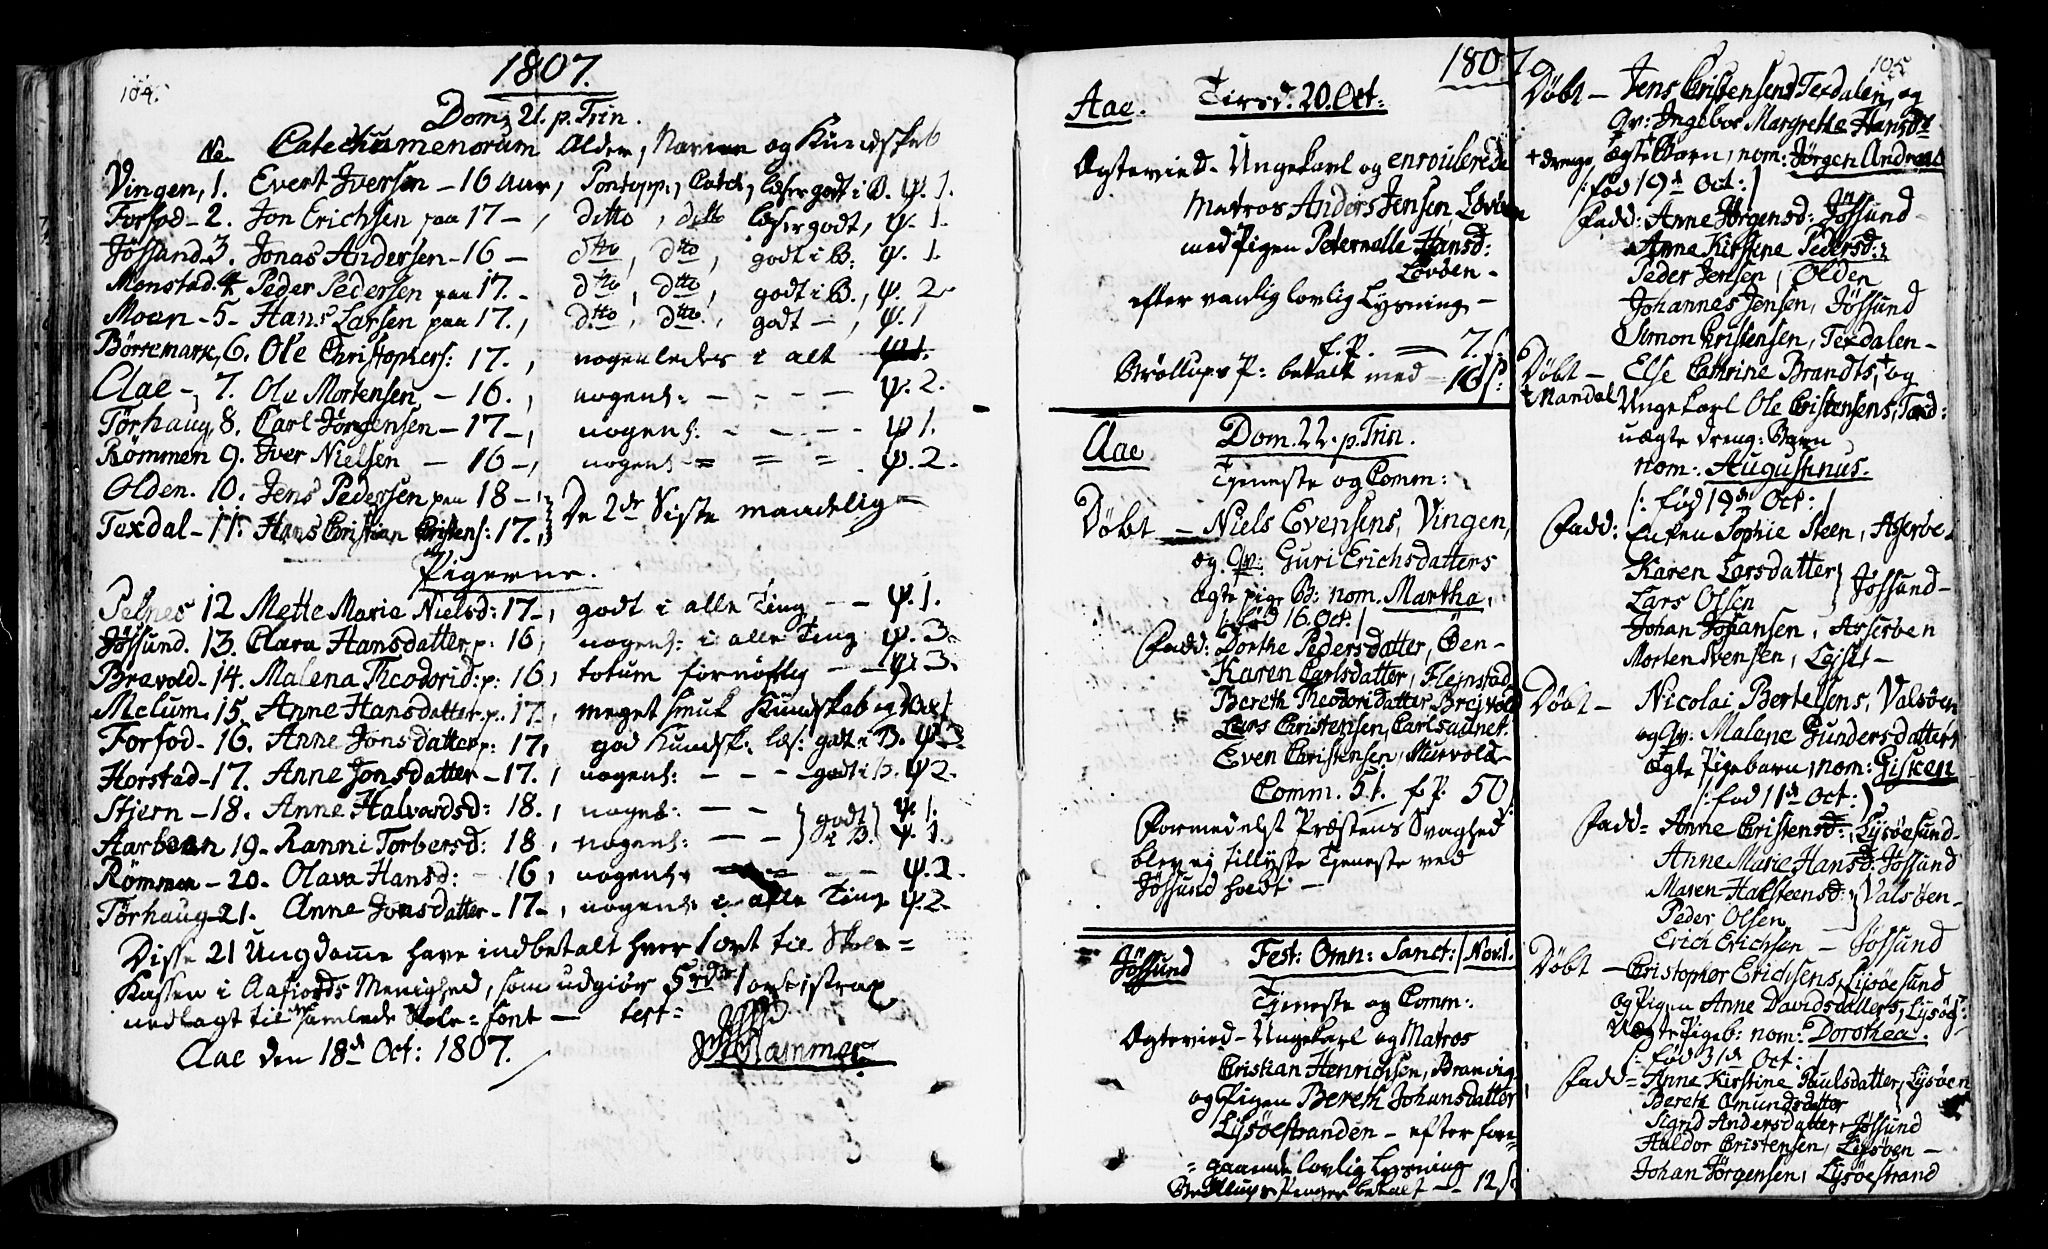 104.
1807.
Dom: 21. p. Trin.
No Catechumenorum Alder, Navne og Kundskab
Vingen, 1. Evert Iversen - 16 Aar, Pontopp:, Catech, læser godt i B. ψ. 1.
Forfod - 2. Jon Erichsen paa 17 -, ditto, ditto læser godt, ψ. 1.
Jössund. 3. Jonas Andersen - 16 - dtto, dtto, godt i B: ψ. 1.
Monstad. 4. Peder Pedersen paa 17. - dtto, dtto, godt i B., ψ. 2
Moen - 5 - Hans Larsen paa 17., dtto, dtto, godt -, ψ. 1
Börsemark, 6. Ole Christophers: 17., nogenledes i alt
Aae -, 7. Ole Mortensen - 16., nogenl: - - - - ψ. 2.
Törhaug, 8. Carl Jörgensen - 17 -, nogenl: - - - - ψ 1.
Römmen 9. Iver Nielsen - 16 -, nogenl - = = = ψ. 2.
Olden. 10. Jens Pedersen paa 18 - De 2de Siste maadelig -
Texdal - 11. Hans Christian Cristens: 17.
Pigerne.
Pelnes 12 Mette Maria Nielsd: 17 -, godt i alle Ting - - ψ. 1.
Jössund. 13. Clara Hansdatter p: 16, nogenl: i alle Ting ψ. 3.
Brevold - 14. Malena Theodorid: p: 16, totum fornöftig - - ψ. 3.
Melum. 15. Anne Hansdatter p. 17., meget smuk Kundskab og
Forfod - 16. Anne Jonsdatter p: 17, god Kundsk: læs: godt i B. ψ
Horstad - 17. Anne Jonsdatter - 17., nogenl: - - - godt i B. ψ 2.
Stjern - 18. Anne Halvardsd: 18., nogenl: - - godt ψ. 1.
Aarboen 19 - Ranni Torbersd: 18, nogenl: - - i B. ψ. 1.
Römmen - 20. Olava Hansd: - 16, nogenl: - - - ψ. 2.
Törhaug - 21. Anne Jonsdatter - 17 -, nogenl: i alle Ting ψ. 2.
Disse 21 Ungdomme have indbetalt hver 1 ort til Skole =
Kassen i Aafjords Menighed, som udgiör 5 rd 1 ort i strax
nedlagt til samlede Skole = font - test =
Aae den 18d Oct: 1807. Hammer
1807
Aae. Tirsd: 20. Oct:
Ægtevied - Ungekarl og enroulerede
Matros Anders Jensen Lövöen
med Pigen Peternelle Hansd:
Lövöen -
efter vanlig lovlig Lysning -
f. P. = 7. s:
Bröllups P: betalt med - 16 s:
Aae Dom. 22. p. Trin.
Tjeneste og Comm:
Döbt - Niels Evensens, Vingen,
og Qv: Guri Erichsdatters
ægte pige B: nom. Martha,
/: föd 16. Oct: /
Fadd: Dorthe Pedersdatter, Öen -
Karen Carlsdatter, Flenstad
Bereth Theodoridatter Breivold
Lars Christensen, Carlsaunet.
Even Christensen, Murvold -
Comm. 51. f. P. 50
Formedelst Præstens Svaghed
blev ej tillyste Tjeneste ved
Jössund holdt -
Jössund Fest: Omn: Sanct: / Nov: 1.
Tjeneste og Comm:
Ægteviet - Ungekarl og Matros
Cristian Henrichsen, Brandvig
og Pigen Bereth Johansdatter
Lysöestranden - efter fore =
= gaaende lovlig Lysning
Bröllups Penger betalt - 12 s.
105
Döbt - Jens Cristensens Texdalen, og
Qv: Ingebor Margrethe Hansdr
+ drenge, ægte Barn, nom: Jörgen Andreas
/: föd 19d Oct: /
Fadd: Anne Jörgensd: Jössund -
Anne Kirstine Pedersd:
Peder Jensen, Olden
Johannes Jensen, Jössund
Simon Cristensen, Texdalen -
Döbt - Else Cathrine Brandts, + og
+ Mandal Ungekarl Ole Cristensens, Texd:
uægte dreng: Barn
nom: Augustinus.
/: föd 19d Oct: /
Fadd: Enken Sophie Steen, Aseröe.
Karen Larsdatter Jössund -
Lars Olsen
Johan Johansen, Asseröen
Morten Svensen, Lyset -
Döbt - Nicolai Bertelsens, Valsöen
og Qv: Malene Gundersdatters
ægte Pigebarn, nom: Gisken
/: föd 11d Oct: /
Fadd = Anne Cristensd: Lysöesund -
Anne Marie Hansd: Jössund
Maren Halsteensd: Valsöen -
Peder Olsen
Erich Erichsen - Jössund
Döbt - Cristopher Erichsens, Lysöesund
og Pigen Anne Davidsdatters, Lysöes:
Uægte Pigeb: nom: Dorothea.
/: föd 31d Oct: /
Fadd = Anne Kirstine Paulsdatter, Lysöen
Bereth Omundsdatter
Sigrid Andersdatter, Jössund
Haldor Cristensen, Lysöen -
Johan Jörgensen, Lysöestrand